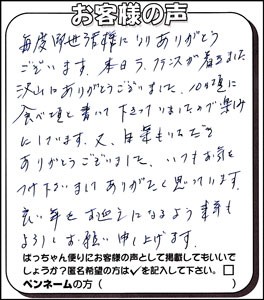 お客様の声
毎度お世話様になりありがとう
ございます。本日ラ・フランスが着きました
沢山にありがとうございました、10日頃に
食べ頃と書いて下さっていましたので楽しみ
にしています。又、
ありがとうございました、いつもお気を
つけ下さいましてありがたく思っています。
良い年をお迎えになるよう来年も
よろしくお願い申し上げます。
ばっちゃん便りにお客様の声として掲載してもいいで
しょうか?匿名希望の方は✓を記入して下さい。□
ペンネームの方( )